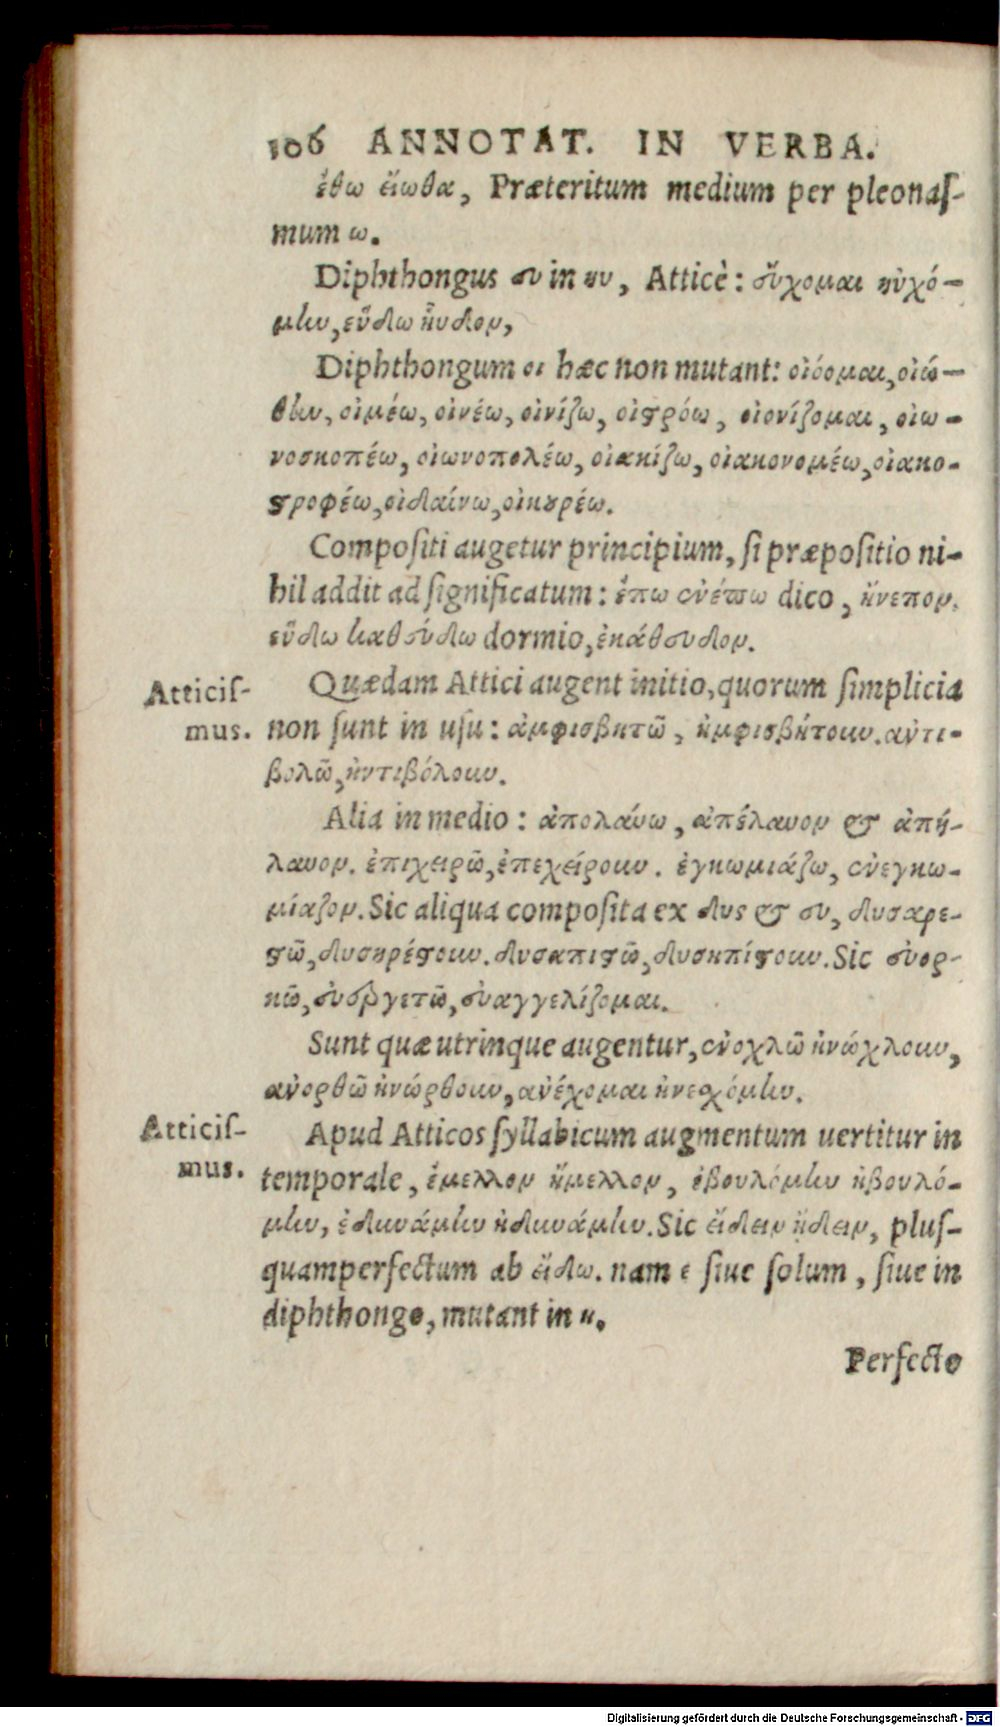 106 ANNOTAT. IN VERBA.
ἔθω εἴωθα, Præteritum medium per pleonaſ-
mum ω.
Diphthongus ευ in ηυ, Atticè: εὔχομαι ηὐχό-
μην, εὕδω ηὗδον,
Diphthongum οι hæc non mutant: οἰόομαι, οἰώ-
θην, οἰμέω, οἰνέω, οἰνίζω, οἰςρόω, οἰονίζομαι, οἰω-
νοσκοπέω, οἰωνοπολέω, οἰακίζω, οἰακονομέω, οἰακο-
ςροφέω, οἰδαίνω, οἰκουρέω.
Compoſiti augetur principium, ſi præpoſitio ni-
hil addit ad ſignificatum: ἔπω ἐνέπω dico, ἤνεπον.
εὕδω καθεύδω dormio, ἐκάθευδον.
Atticiſ-
mus.
Quædam Attici augent initio, quorum ſimplicia
non ſunt in uſu: ἀμφισβητῶ, ἠμφισβήτουν. ἀντι-
βολῶ, ἠντιβόλουν.
Alia in medio: ἀπολαύω, ἀπέλαυον & ἀπή-
λαυον. ἐπιχειρῶ, ἐπεχείρουν. ἐγκωμιάζω, ἐνεγκω-
μίαζον. Sic aliqua compoſita ex δυς & ευ, δυσαρε-
ςῶ, δυσηρέςουν. δυσαπιςῶ, δυσηπίςουν. Sic εὐορ-
κῶ, εὐεργετῶ, εὐαγγελίζομαι.
Sunt quæ utrinque augentur, ἐνοχλῶ ἠνώχλουν,
ἀνορθῶ ἠνώρθουν, ἀνέχομαι ἠνεχόμην.
Atticiſ-
mus.
Apud Atticos ſyllabicum augmentum uertitur in
temporale, ἔμελλον ἤμελλον, ἐβουλόμην ἠβουλό-
μην, ἐδυνάμην ἠδυνάμην. Sic εἴδειν ᾔδειν, pluſ-
quamperfectum ab εἴδω. nam ε ſiue ſolum, ſiue in
diphthongo, mutant in η.
Perfecto
Digitalisierung gefördert durch die Deutsche Forschungsgemeinschaft - DFG